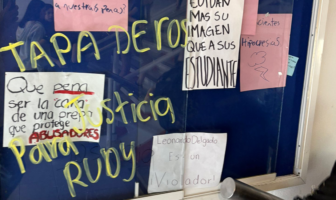 a nuestras
TAPADEROS
CUIDAN
MAS SU
IMAGEN
QUE A SUS
ESTUDIANTE
Que pena
ser la cara
de una prepa
que protege
ABUSADORES
Justicia
Para
RUDY
Leonardo Delgado
Es un
Violador!